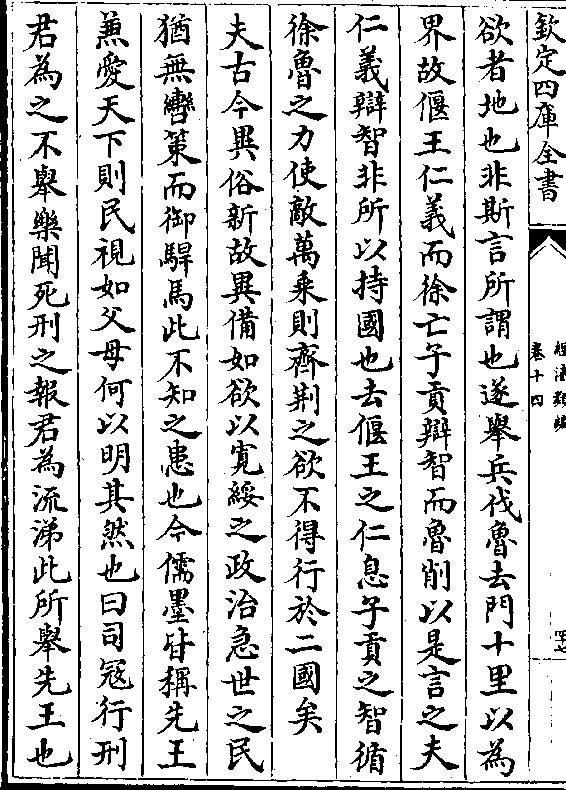 欽定四庫全書
經濟類編
卷十四
欲者地也非斯言所謂也遂舉兵伐魯去門十里以為
界故偃王仁義而徐亡子貢辯智而魯削以是言之夫
仁義辯智非所以持國也去偃王之仁息子貢之智循
徐魯之力使敵萬乘則齊荆之欲不得行於二國矣
夫古今異俗新故異備如欲以寛緩之政治急世之民
猶無轡䇿而御駻馬此不知之患也今儒墨皆稱先王
兼愛天下則民視如父母何以明其然也曰司冦行刑
君為之不舉樂聞死刑之報君為流涕此所舉先王也